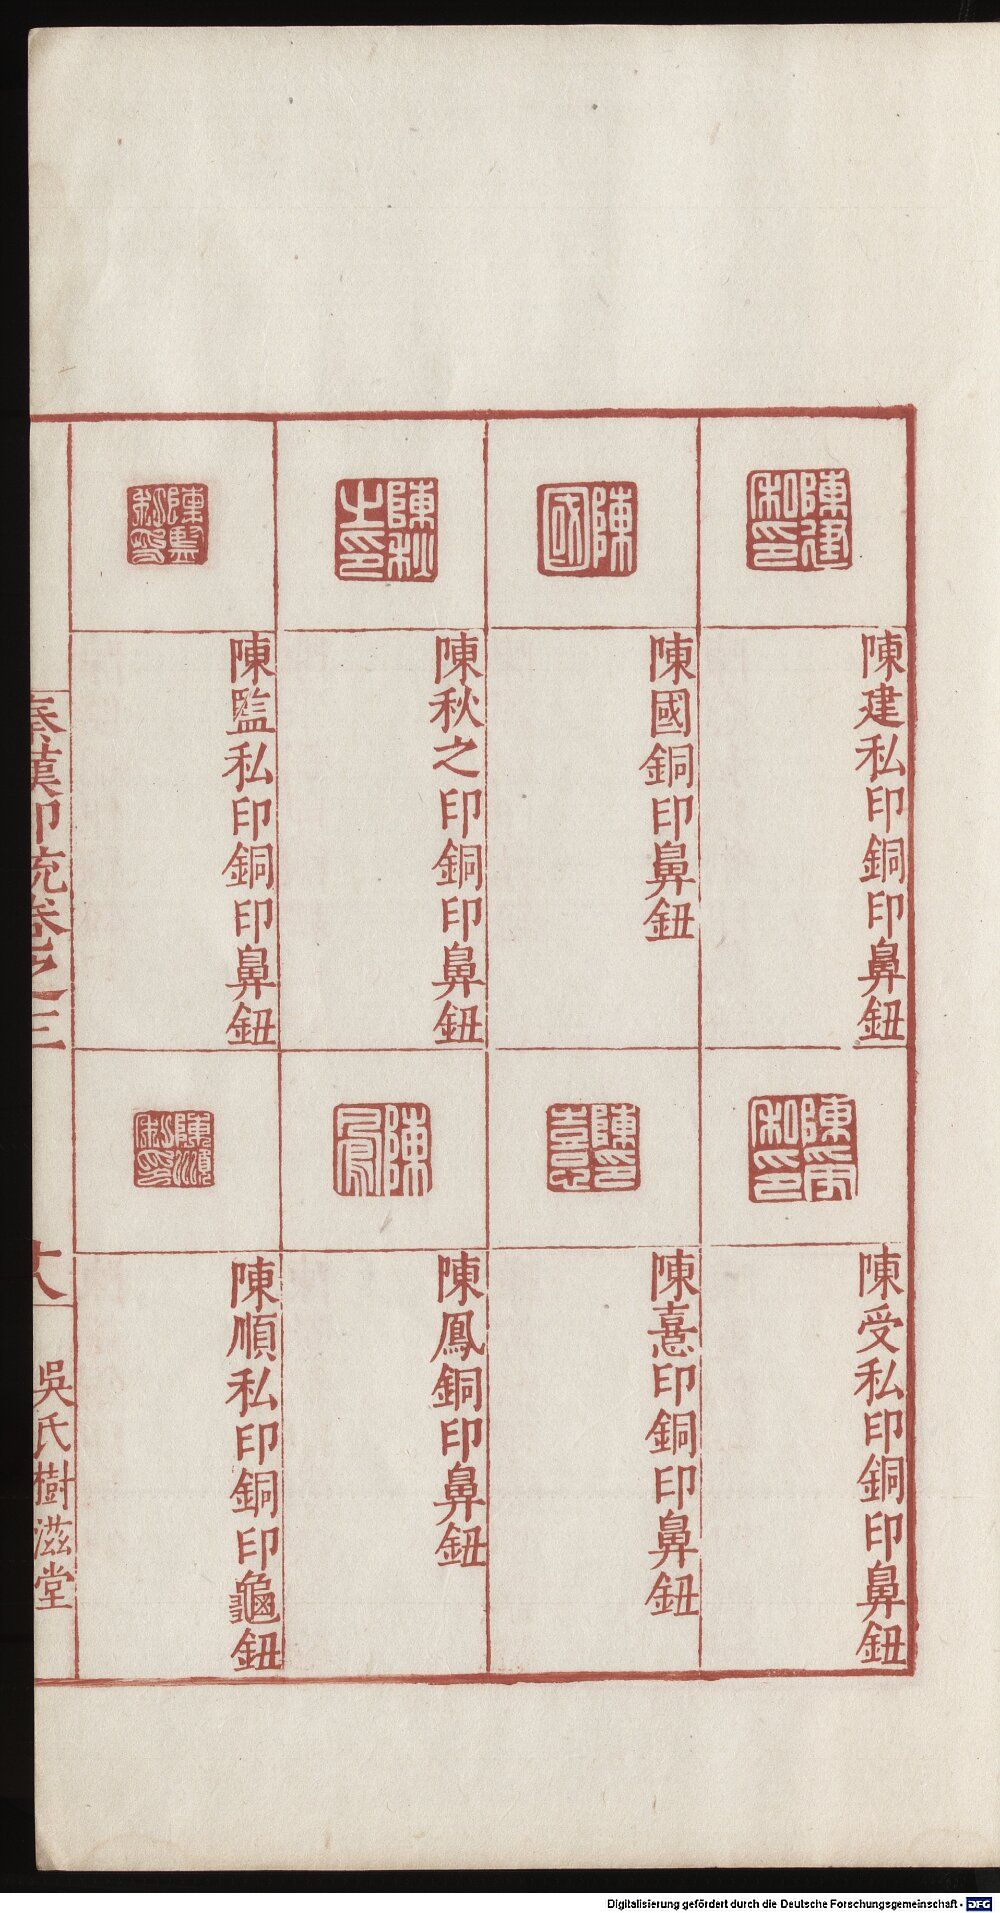 陳建私印
陳建私印銅印鼻鈕
陳國
陳國銅印鼻鈕
陳秋之印
陳秋之印銅印鼻鈕
陳監私印
陳監私印銅印鼻鈕
陳受私印
陳受私印銅印鼻鈕
陳憙印
陳憙印銅印鼻鈕
陳鳳
陳鳳銅印鼻鈕
陳順私印
陳順私印銅印龜鈕
秦漢印統卷之三
十八
吳氏樹滋堂
Digitalisierung gefördert durch die Deutsche Forschungsgemeinschaft - DFG